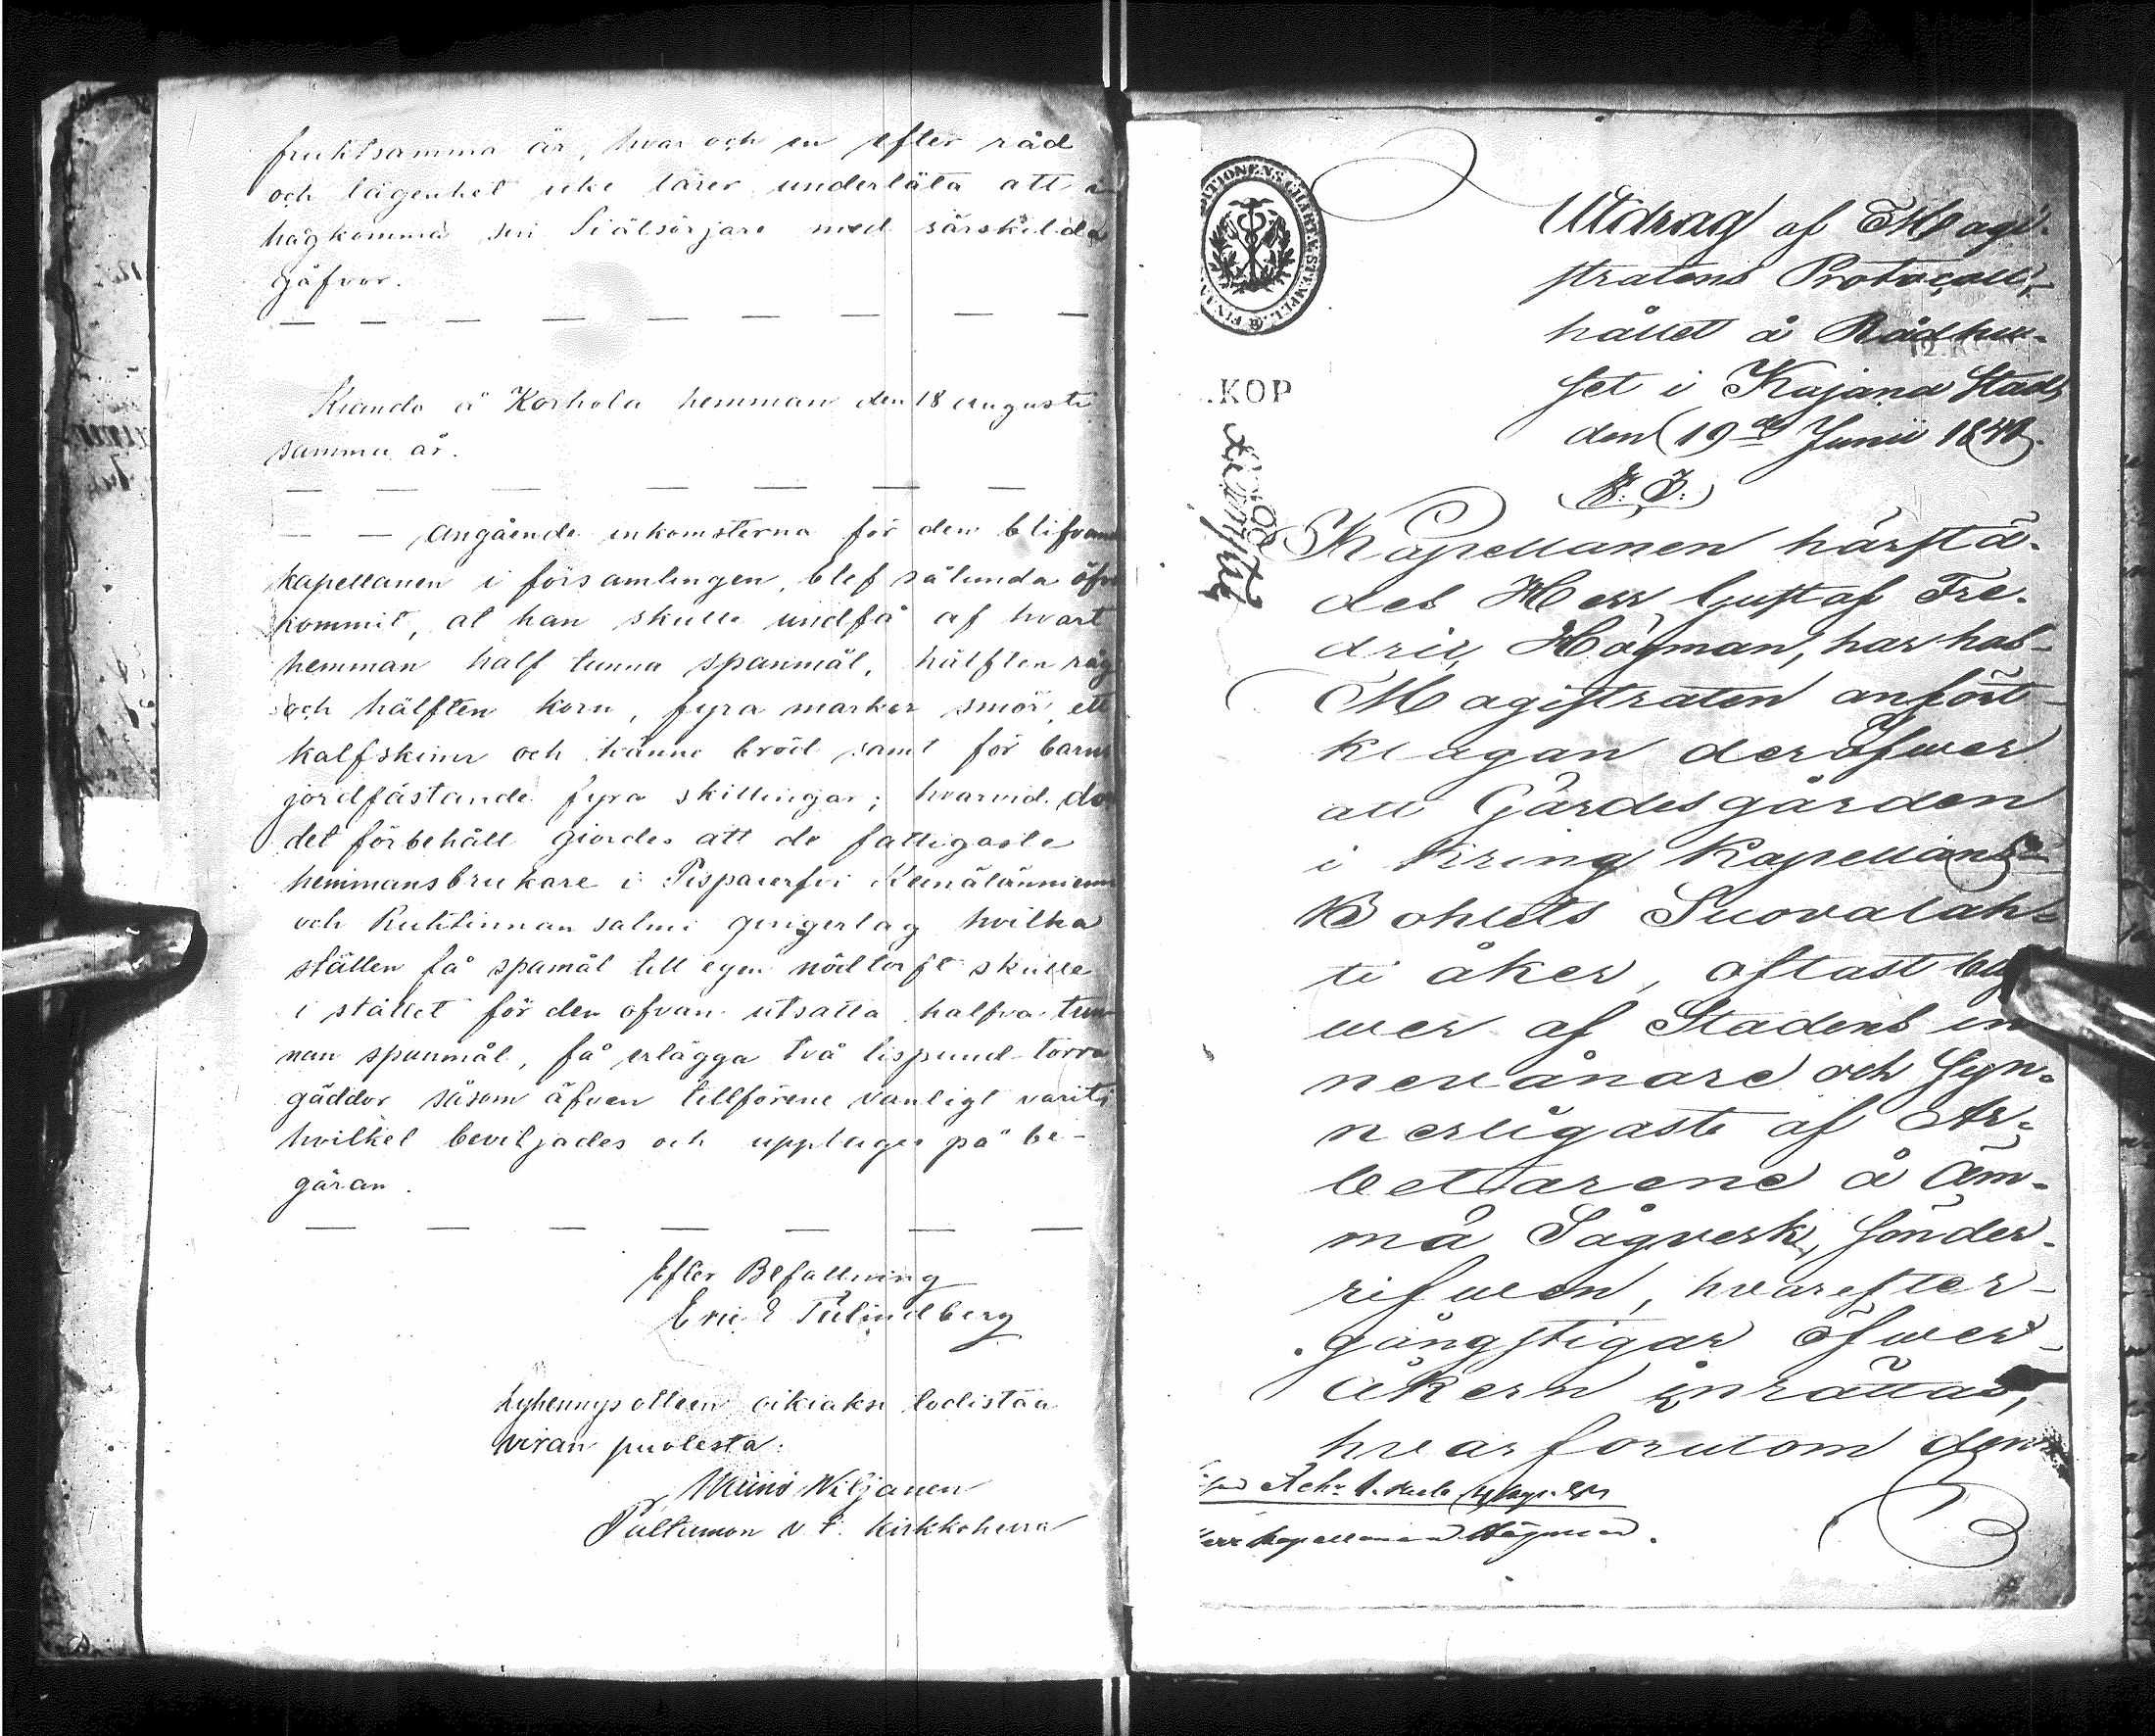 fruktsamma är, hvar och en efter råd
och lägenhet icke lärer underlåta att i
hågkomma sin Siälsörjare med särskilda
gåfvor.
— — — — — — — — —
Kiando å Korhola hemman den 18 augusti
samma år.
— — — — — — —
— — Angående inkomsterna för den blifvan
kapellanen i församlingen, blef sålunda öfv
kommit, at han skulle undfå af hvart
hemman half tunna spanmål, hälften råg
och hälften korn, fyra marker smör, ett
kalfskinn och bröd samt för barns
jordfästande fyra skillingar; hvarvid do
det förbehåll giordes att de fattigaste
hemmansbrukare i
och salmi gingerlag hvilka
ställen få spamål till egen nödtorft skulle
i stället för den ofvan utsatta halfva tun
nan spanmål, få erlägga två lispund torra
gäddor såsom äfven tillförene vanligt varit,
hvilket beviljades och upptages på be-
gäran.
— — — — — — —
Efter Befallning
Eric E Tulindberg
Lyhennys otteen oikiaksi todistaa
viran puolesta:
Wäinö Wiljanen
Paltamon v. t. kirkkoherra
CHARTÆ STEMPEL
KOP
Utdrag af Magi-
stratens Protocoll,
hållet å Rådhu-
set i Kajana Stad,
den 19de Junii 1840.
S. D.
Kapellanen härstä-
des Herr Gustaf Fre-
dric Högman, har hos
Magistraten anfört
klagan deröfwer
att Gärdesgården
i kring Kapellans-
Bohlets Suovalah-
ti åker, oftast
wer af Stadens in
newånare och syn-
nerligaste af Ar-
betarene å Äm-
mä Sågverk, sönder-
rifwen, hvarefter
gångstigar öfwer
åkern inrättas,
hvarforutom den
Kapellanen Högman.